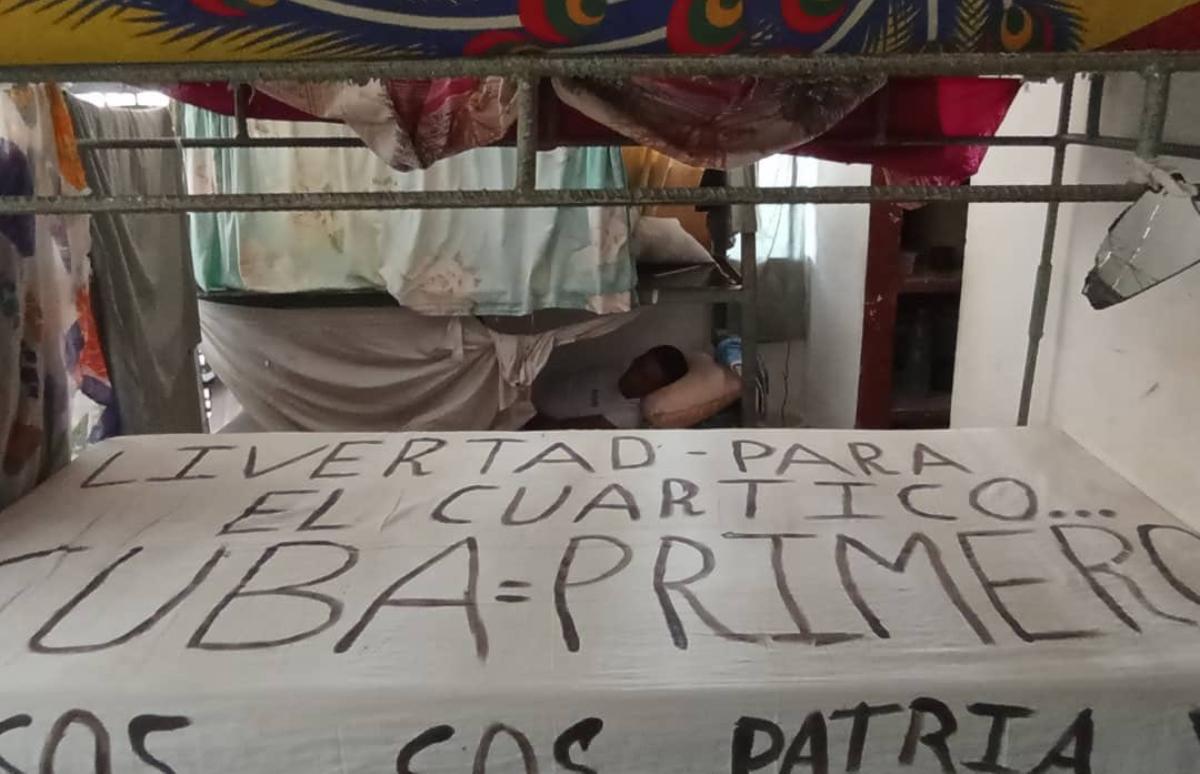 LIVERTAD-PARA
EL CUARTICO...
CUBA=PRIMERO
SOS SOS PATRIA Y